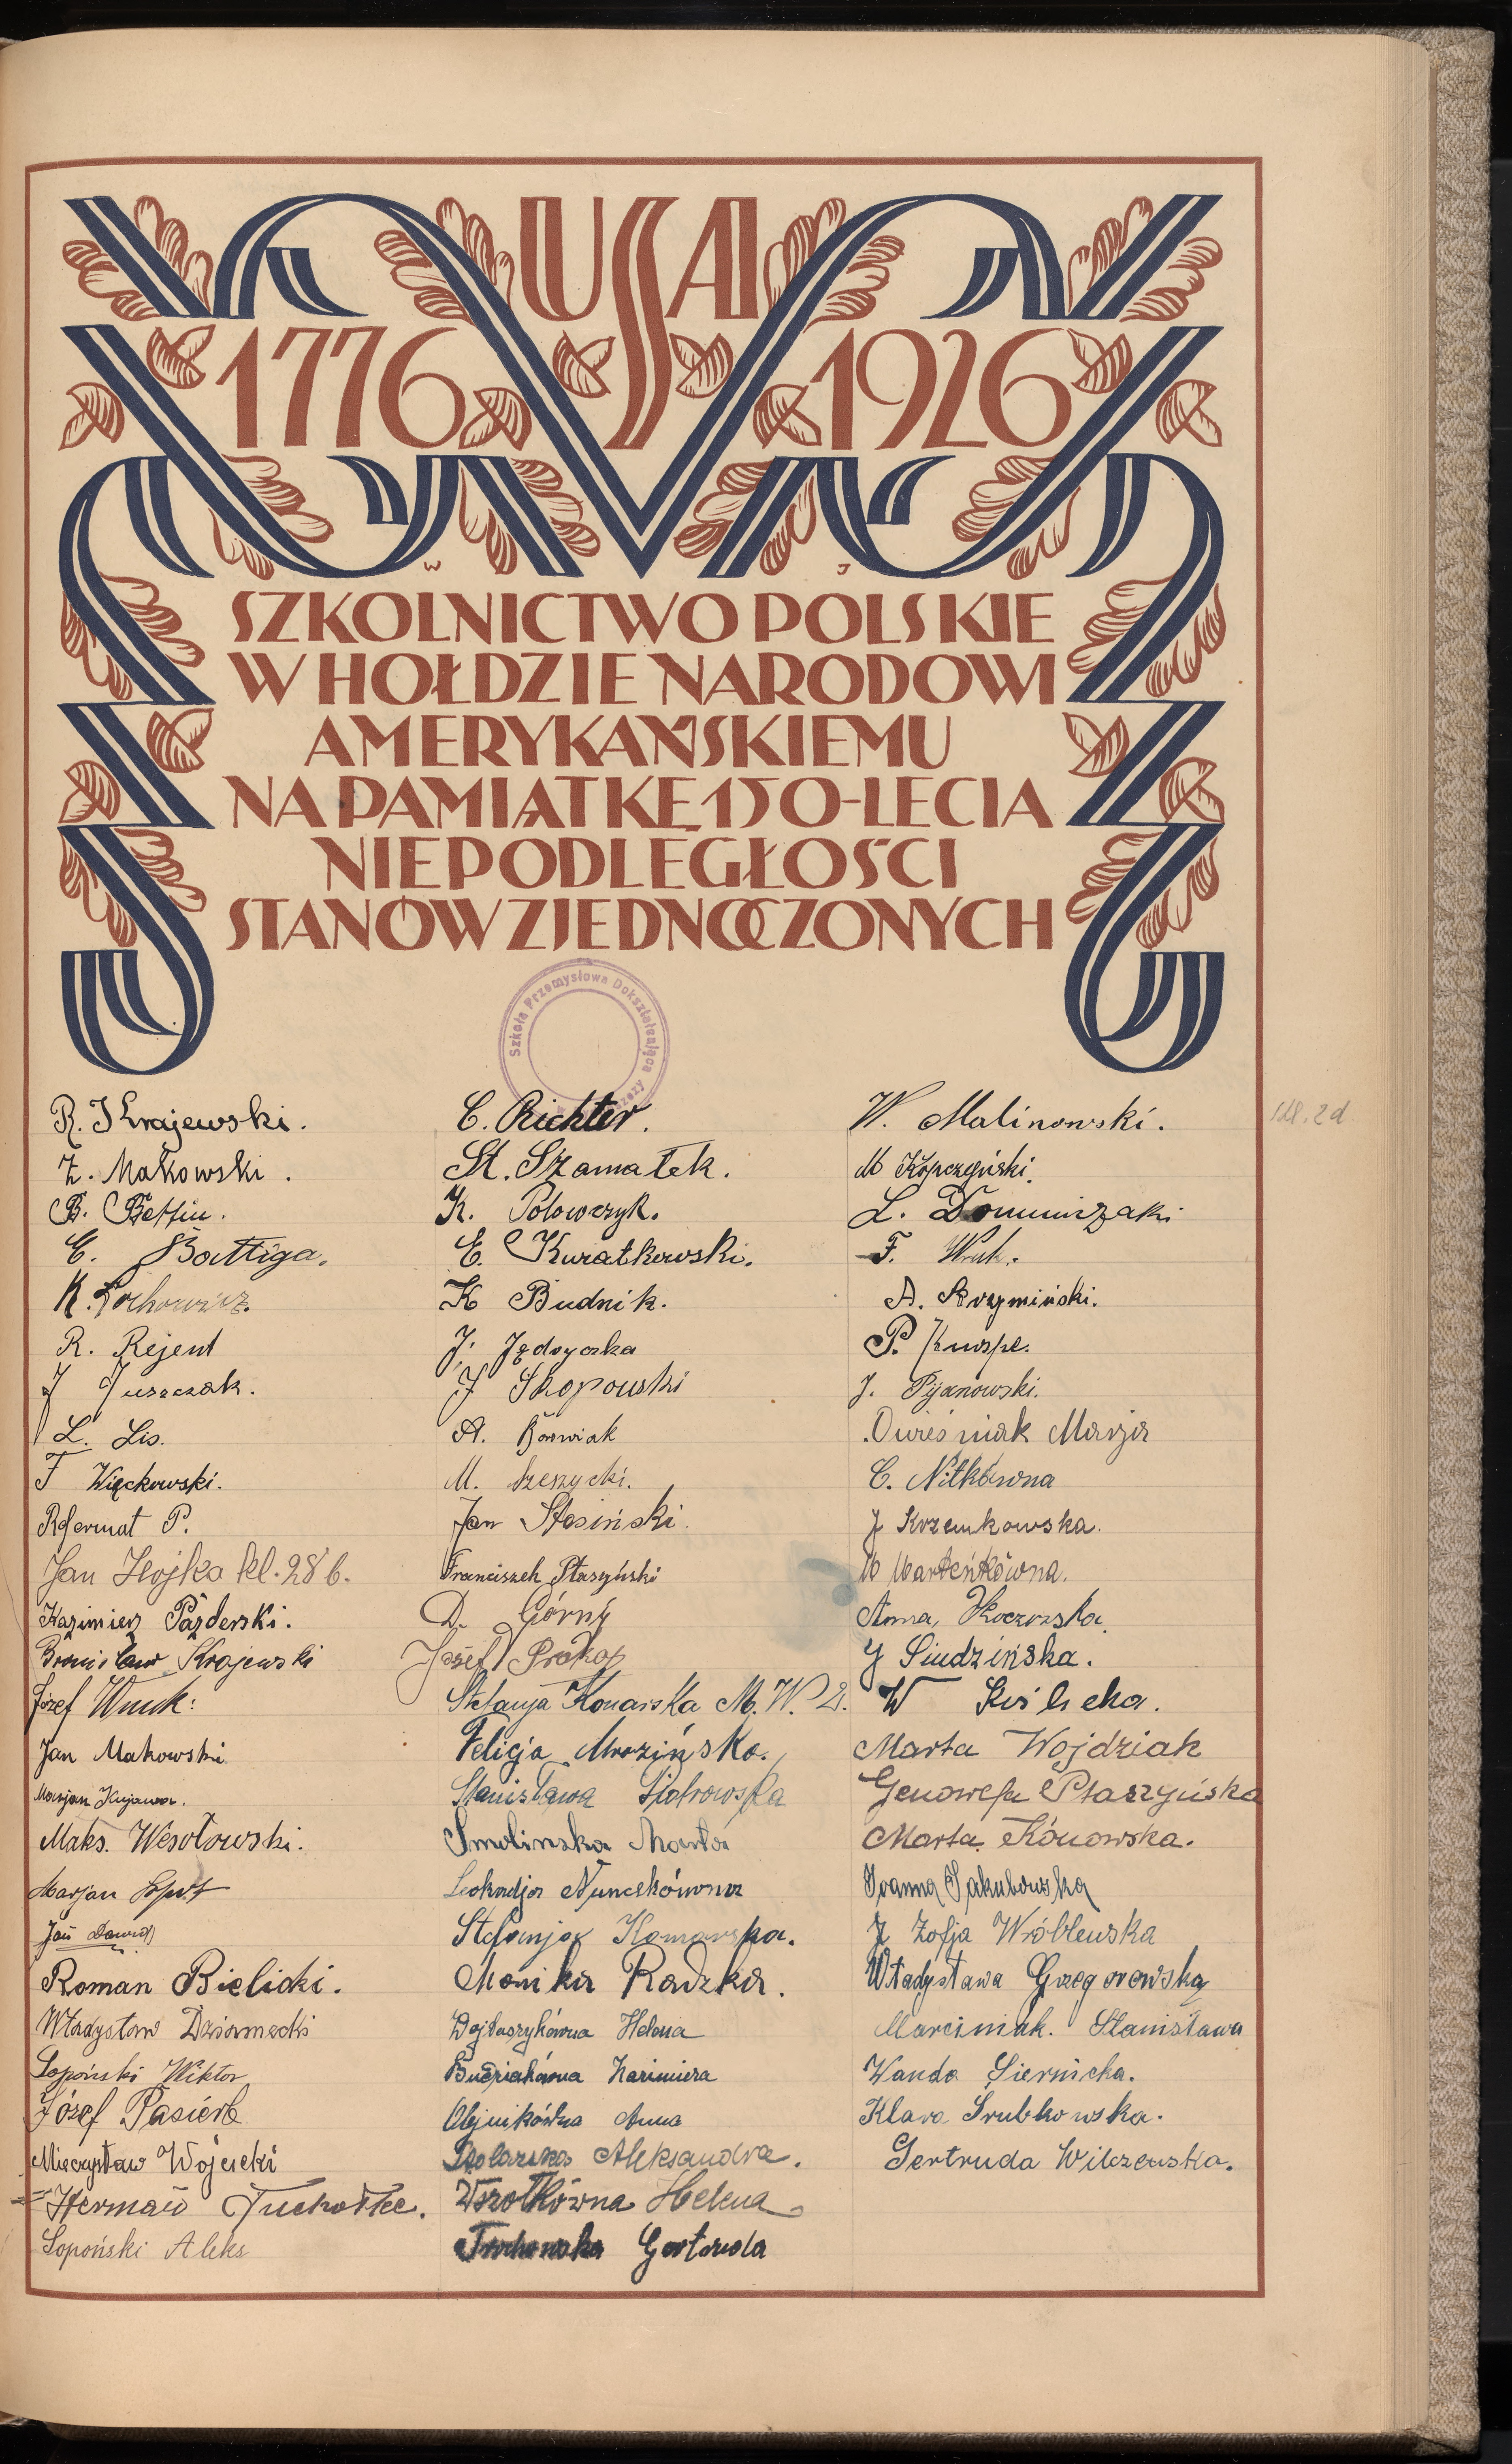 USA
1776 1926
W J
SZKOLNICTWO POLSKIE
W HOŁDZIE NARODOWI
AMERYKAŃSKIEMU
NA PAMIĄTKĘ 150-LECIA
NIEPODLEGŁOŚCI
STANÓW ZJEDNOCZONYCH
Szkoła Przemysłowa Dokształcająca
R. Krajewski.
Z. Makowski.
B.
E. Battiga.
K. Lochowicz.
R. Rejent
J Juszczak.
L. Lis.
F Więckowski.
P.
Jan kl. 28 b.
Kazimierz Pazderski.
Bronisław Krajewski
Józef Wnuk:
Jan Makowski
Marjan Kujawa.
Maks. Wesołowski.
Marjan
Jan Dawid
Roman Bielicki.
Władysław
Łopoński Wiktor
Józef Pasierb
Mieczysław Wójcicki
Herman
Łopoński Aleks
C. Richter.
St. Szamałek.
K. Połowczyk.
E. Kwiatkowski.
K Budnik.
J. Jędryczka
J Skopowski
A.
M. Szeszycki.
Jan Stesiński.
Franciszek Ptaszyński
D. Górny
Józef Prokop
Stefanja Konarska M. W. D.
Felicja Mrozińska.
Stanisława Piotrowska
Smolinska Marta
Leokadja
Stefanja Komarska.
Monika Radzka.
Wojtaszykówna Helena
Kazimiera
Olejnikówna Anna
Aleksandra.
Wszołkówna Helena
Gertruda
W. Malinowski.
M Kopczyński.
L.
F. Wnuk.
A. Krzymiński.
P.
J. Pijanowski.
Owieśniak Marja
C. Nitkówna
J Krzemkowska.
M
Anna
J Siudzińska.
W
Marta Wojdziak
Genowefa Ptaszyńska
Marta Konowska.
Joanna Jakubowska
J Zofja Wróblewska
Władysława Grzegorowska
Marciniak. Stanisława
Wanda Siernicka.
Klara Grubkowska.
Gertruda Wilczewska.